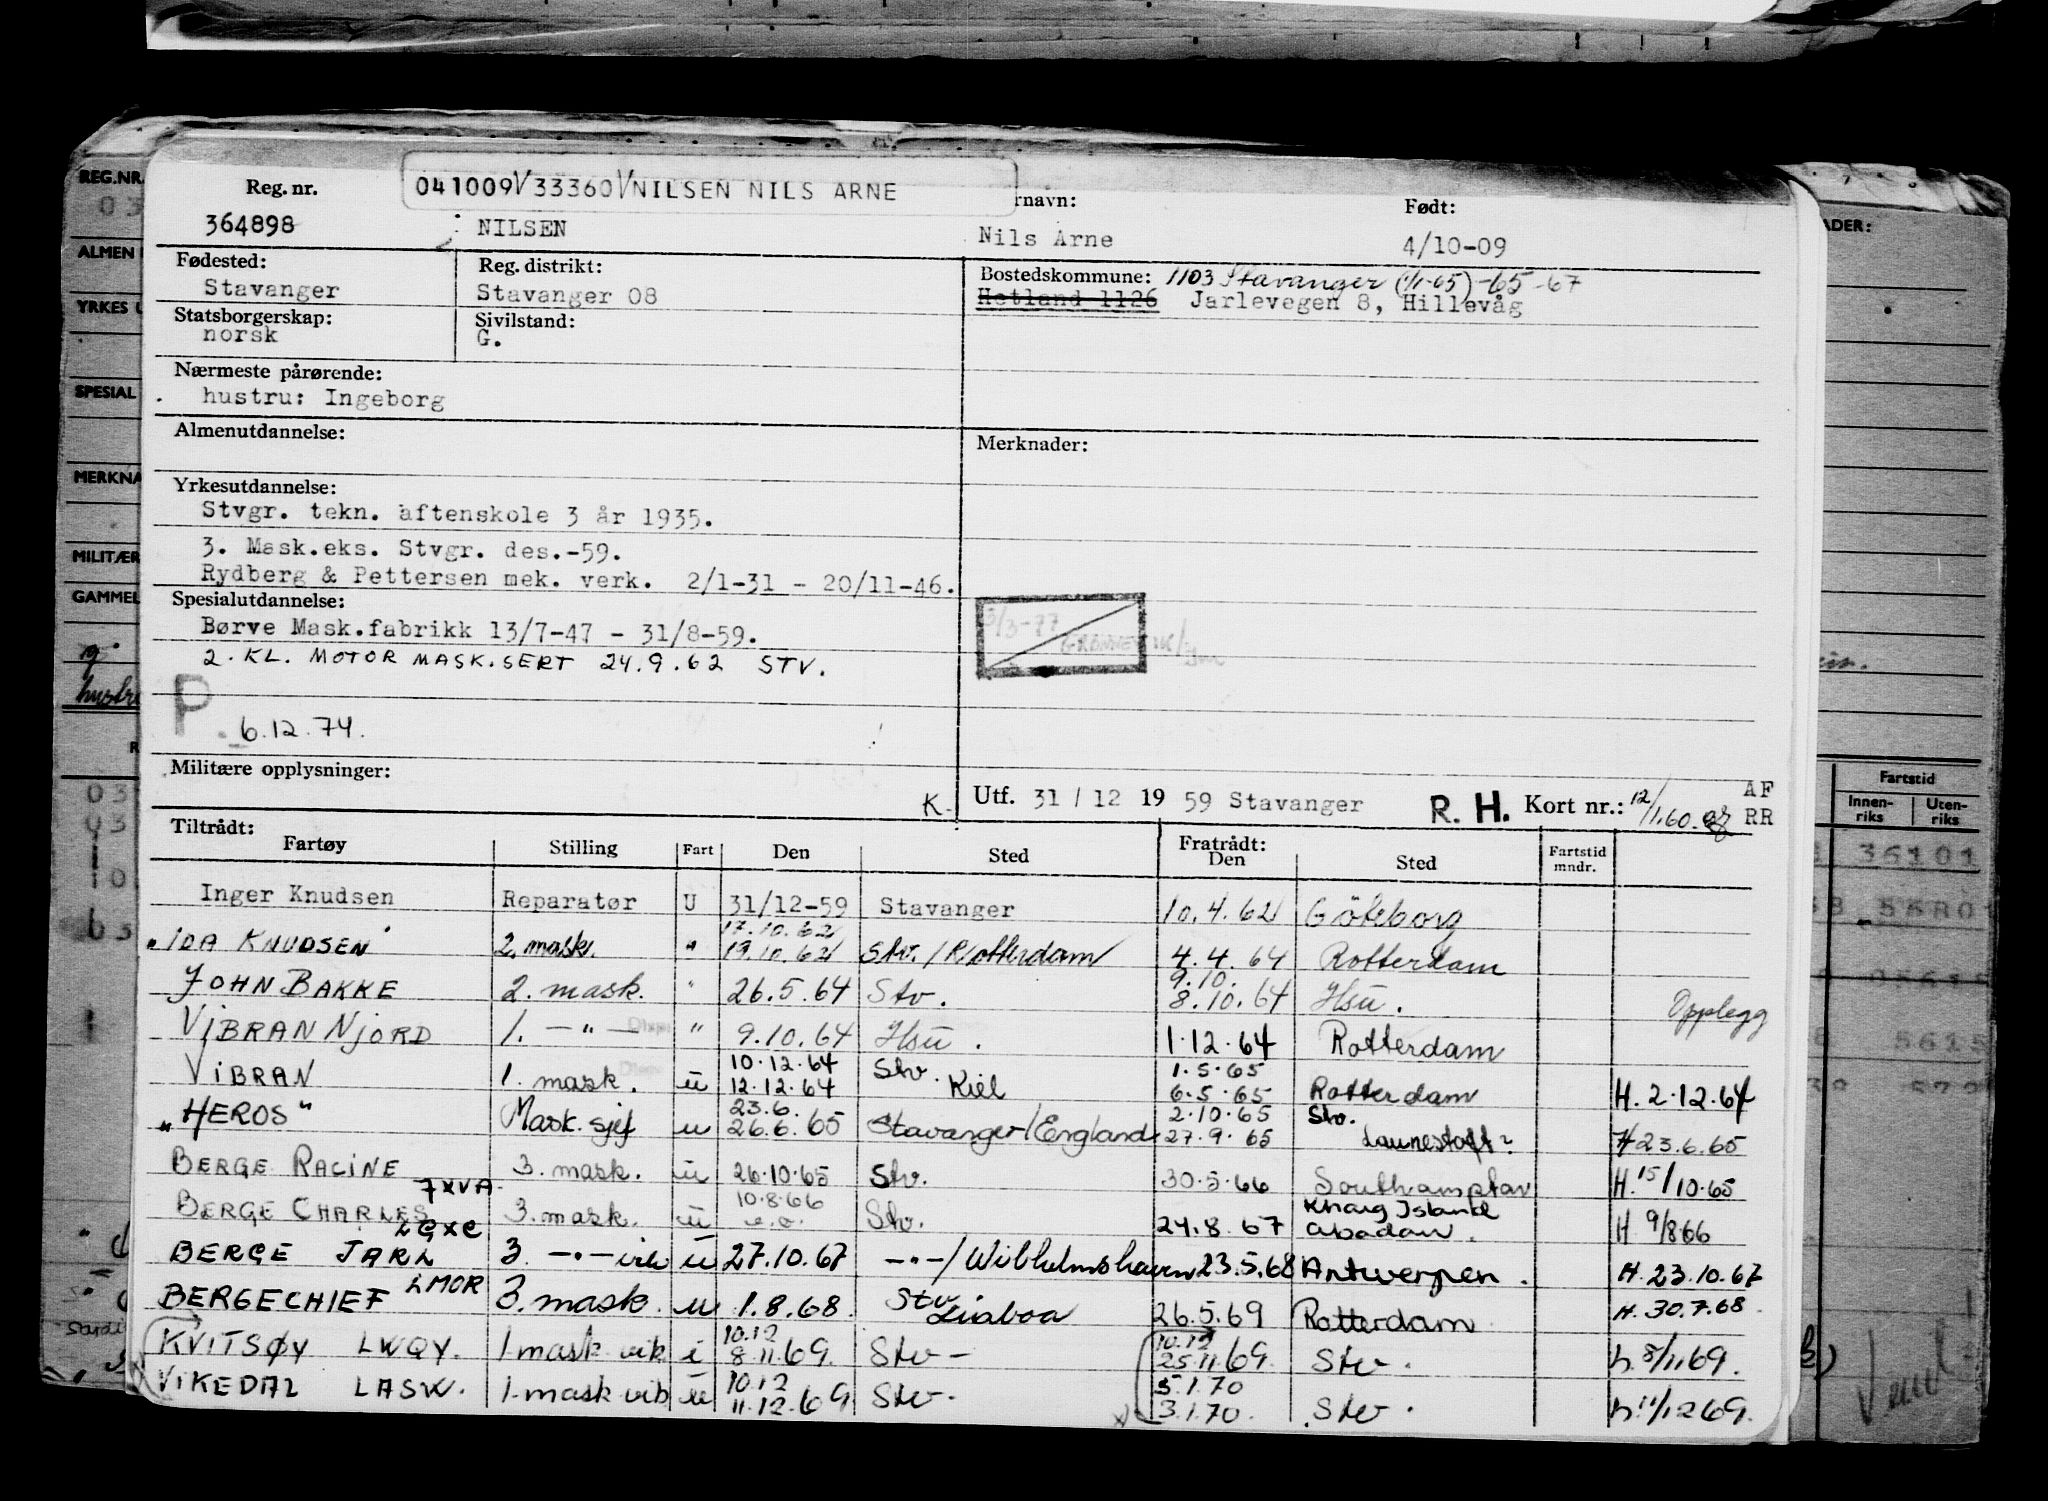 041009\/33360\/NILSEN NILS ARNE
Reg. nr. rnavn: Født:
364898 NILSEN Nils Arne 4/10-09
Fødested: Reg. distrikt: Bostedskommune: 1103 Stavanger (1/1-65) -65-67
Stavanger Stavanger 08 Hetland 1126 Jarlevegen 8, Hillevåg
Statsborgerskap: Sivilstand:
norsk G.
Nærmeste pårørende:
hustru: Ingeborg
Almenutdannelse: Merknader:
Yrkesutdannelse:
Stvgr. tekn. aftenskole 3 år 1935.
3. Mask.eks. Stvgr. des.-59.
Rydberg & Pettersen mek. verk. 2/1-31 - 20/11-46.
Spesialutdannelse:
Børve Mask.fabrikk 13/7-47 - 31/8-59.
2. KL. MOTOR MASK.SERT 24.9.62 STV.
P
6.12.74.
Militære opplysninger:
K. Utf. 31 / 12 19 59 Stavanger R. H. Kort nr.: 12/1.60. AF RR
Tiltrådt: Fratrådt:
Fartøy Stilling Fart Den Sted Den Sted Fartstid mndr.
Inger Knudsen Reparatør U 31/12-59 Stavanger 10.4.62 Göteborg
17.10.62
"IDA KNUDSEN" 2. mask. " 19.10.62 Stv. / Rotterdam 4.4.64 Rotterdam
9.10.
JOHN BAKKE 2. mask. " 26.5.64 Stv. 8.10.64 Hsü. Opplegg
VIBRAN NJORD 1. — " — " 9.10.64 Hsü. 1.12.64 Rotterdam
10.12.64 Stv. 1.5.65
VIBRAN 1. mask. ü 12.12.64 Kiel 6.5.65 Rotterdam H. 2.12.64
23.6. 2.10.65 Stv.
"HEROS" Mask.sjef u 26.6.65 Stavanger/England 27.9.65 H 23.6.65
BERGE RACINE 3. mask. ü 26.10.65 Stv. 30.5.66 Southampton H. 15/10.65
7XVA. 10.8.66 Kharg Island
BERGE CHARLES 3. mask. ü Stv. 24.8.67 Abadan. H 9/8 66
LGXC
BERGE JARL 3. —"— vik ü 27.10.67 —"—/Wilhelmshaven 23.5.68 Antwerpen. H. 23.10.67
LMOR Stv
BERGECHIEF 3. mask. u 1.8.68. Lisboa 26.5.69 Rotterdam H. 30.7.68.
10.12 10.12
KVITSØY LWQY. 1 mask vik i 8.11.69. Stv - 25.11.69. Stv. h. 8/11 69.
10.12 5.1.70
VIKEDAL LASW. 1. mask vik ü 11.12.69 Stv. 3.1.70. Stv. h. 11/12 69.
REG.NR.
ALMEN
YRKES U
SPESIAL
MERKNA
MILITÆR
GAMMEL
ADER:
Fartstid
Innen-riks Uten-riks
36101